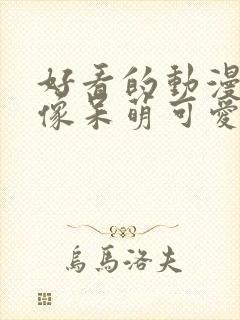 好看的動漫
像呆萌可愛
烏馬洛夫